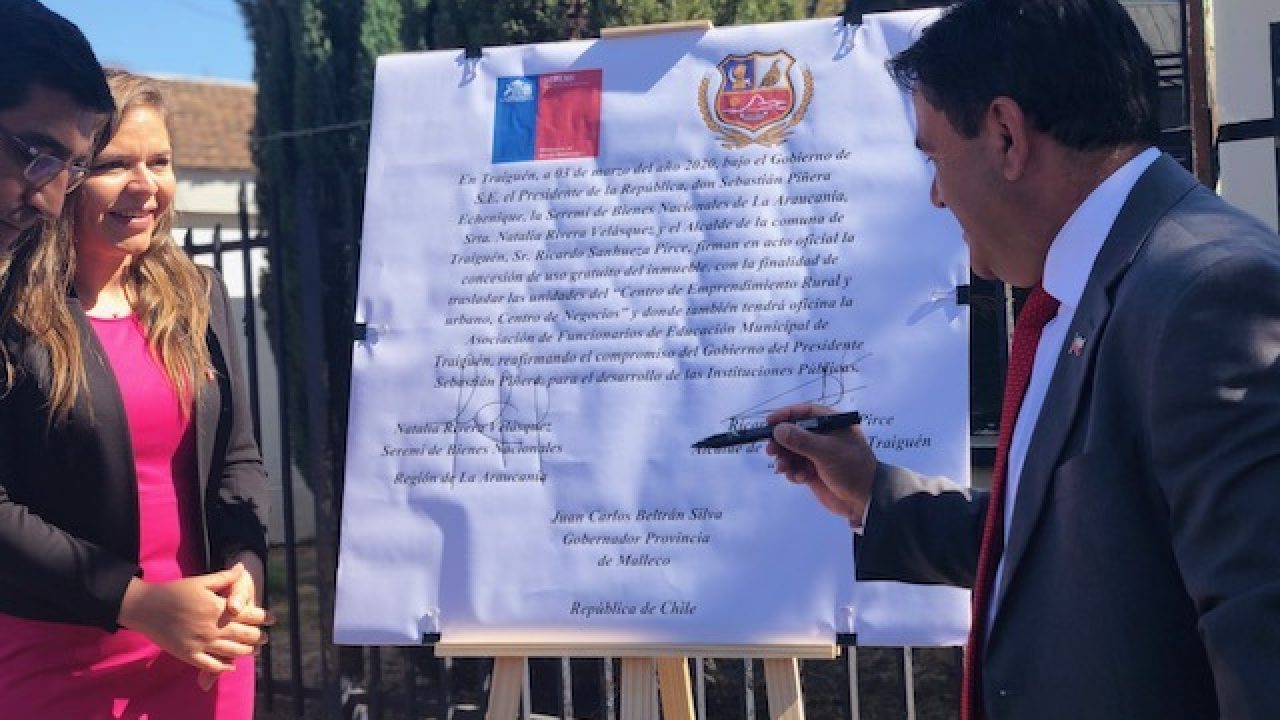 En Traiguén, a 03 de marzo del año 2020, bajo el Gobierno de
S.E. el Presidente de la República, don Sebastián Piñera
Echenique, la Seremi de Bienes Nacionales de La Araucanía,
Srta. Natalia Rivera Velásquez y el Alcalde de la comuna de
Traiguén, Sr. Ricardo Sanhueza Pirce, firman en acto oficial la
concesión de uso gratuito del inmueble, con la finalidad de
trasladar las unidades del "Centro de Emprendimiento Rural y
urbano, Centro de Negocios" y donde también tendrá oficina la
Asociación de Funcionarios de Educación Municipal de
Traiguén, reafirmando el compromiso del Gobierno del Presidente
Sebastián Piñera, para el desarrollo de las Instituciones Públicas.
Natalia Rivera Velásquez
Seremi de Bienes Nacionales
Región de La Araucanía
Pirce
Alcalde de Traiguén
Juan Carlos Beltrán Silva
Gobernador Provincia
de Malleco
República de Chile